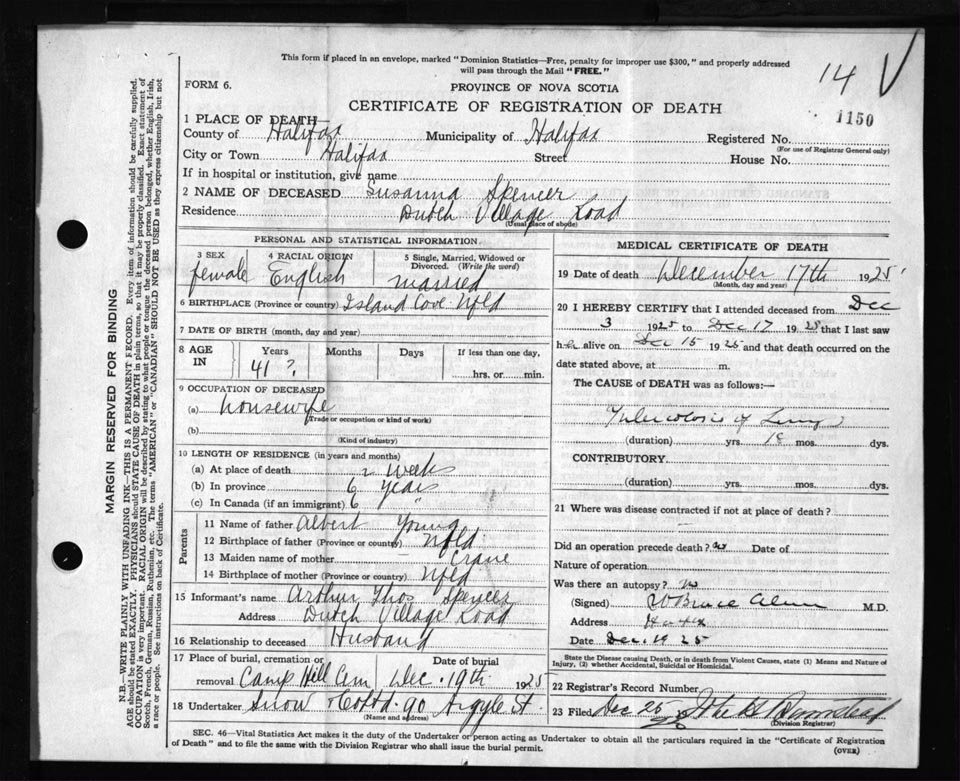 This form if placed in an envelope, marked "Dominion Statistics—Free, penalty for improper use $300," and properly addressed
will pass through the Mail "FREE."
14 V
FORM 6.
PROVINCE OF NOVA SCOTIA
CERTIFICATE OF REGISTRATION OF DEATH
1150
1 PLACE OF DEATH—
County of Halifax Municipality of Halifax Registered No.
(For use of Registrar General only)
City or Town Halifax Street House No.
If in hospital or institution, give name
2 NAME OF DECEASED Susanna Spencer
Residence Dutch Village Road
(Usual place of abode)
PERSONAL AND STATISTICAL INFORMATION
3 SEX 4 RACIAL ORIGIN 5 Single, Married, Widowed or
Divorced. (Write the word)
female English married
6 BIRTHPLACE (Province or country) Island Cove Nfld
7 DATE OF BIRTH (month, day and year)
8 AGE IN Years Months Days If less than one day,
41 ? hrs. or min.
9 OCCUPATION OF DECEASED
(a) housewife
(Trade or occupation or kind of work)
(b)
(Kind of industry)
10 LENGTH OF RESIDENCE (in years and months)
(a) At place of death 2 weeks
(b) In province 6 years
(c) In Canada (if an immigrant) 6 "
Parents
11 Name of father Albert Young
12 Birthplace of father (Province or country) Nfld
13 Maiden name of mother Crane
14 Birthplace of mother (Province or country) Nfld
15 Informant's name Arthur Thos Spencer
Address Dutch Village Road
16 Relationship to deceased Husband
17 Place of burial, cremation or Date of burial
removal Camp Hill Cem Dec. 19th 1925
18 Undertaker Snow & Co Ltd. 90 Argyle St
(Name and address)
MEDICAL CERTIFICATE OF DEATH
19 Date of death December 17th 1925
(Month, day and year)
20 I HEREBY CERTIFY that I attended deceased from Dec
3 1925 to Dec 17 1925 that I last saw
her alive on Dec 15 1925 and that death occurred on the
date stated above, at m.
The CAUSE of DEATH was as follows:—
Tuberculosis of Lungs
(duration) yrs. 18 mos. dys.
CONTRIBUTORY
(duration) yrs. mos. dys.
21 Where was disease contracted if not at place of death?
Did an operation precede death? no Date of
Nature of operation
Was there an autopsy? no
(Signed) W Bruce Almon M.D.
Address Hafx
Date Dec. 19 25
State the Disease causing Death, or in death from Violent Causes, state (1) Means and Nature of
Injury, (2) whether Accidental, Suicidal or Homicidal.
22 Registrar's Record Number
23 Filed Dec 26
(Division Registrar)
SEC. 46—Vital Statistics Act makes it the duty of the Undertaker or person acting as Undertaker to obtain all the particulars required in the "Certificate of Registration
of Death" and to file the same with the Division Registrar who shall issue the burial permit.
(OVER)
MARGIN RESERVED FOR BINDING
N.B.—WRITE PLAINLY WITH UNFADING INK—THIS IS A PERMANENT RECORD. Every item of information should be carefully supplied.
AGE should be stated EXACTLY. PHYSICIANS should STATE CAUSE OF DEATH in plain terms, so that it may be properly classified. Exact statement of
OCCUPATION is very important. RACIAL ORIGIN will be described by stating to what people or tongue the deceased person belonged, whether English, Irish,
Scotch, French, German, Russian, Ruthenian, etc. The terms "AMERICAN" or "CANADIAN" SHOULD NOT BE USED as they express citizenship but not
a race or people. See instructions on back of Certificate.